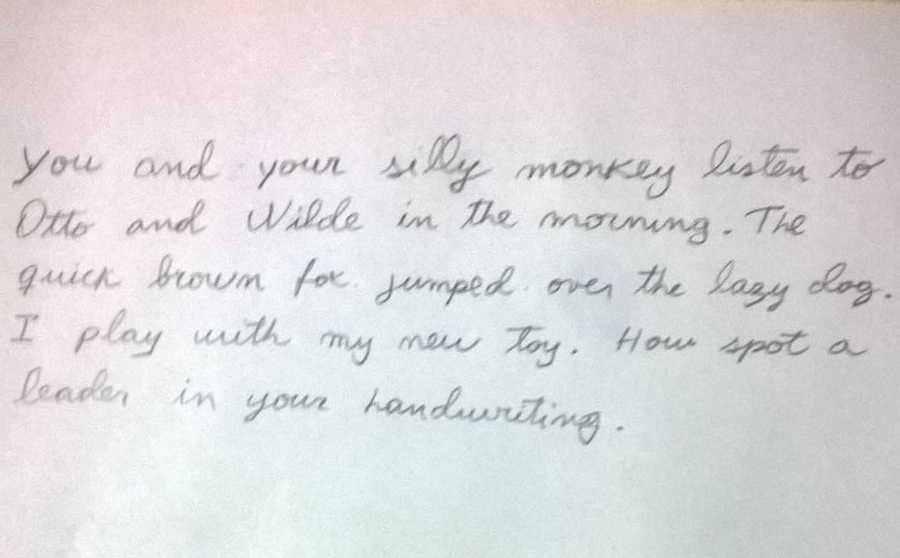 You and your silly monkey listen to
Otto and Wilde in the morning. The
quick brown fox jumped over the lazy dog.
I play with my new toy. How spot a
leader in your handwriting.